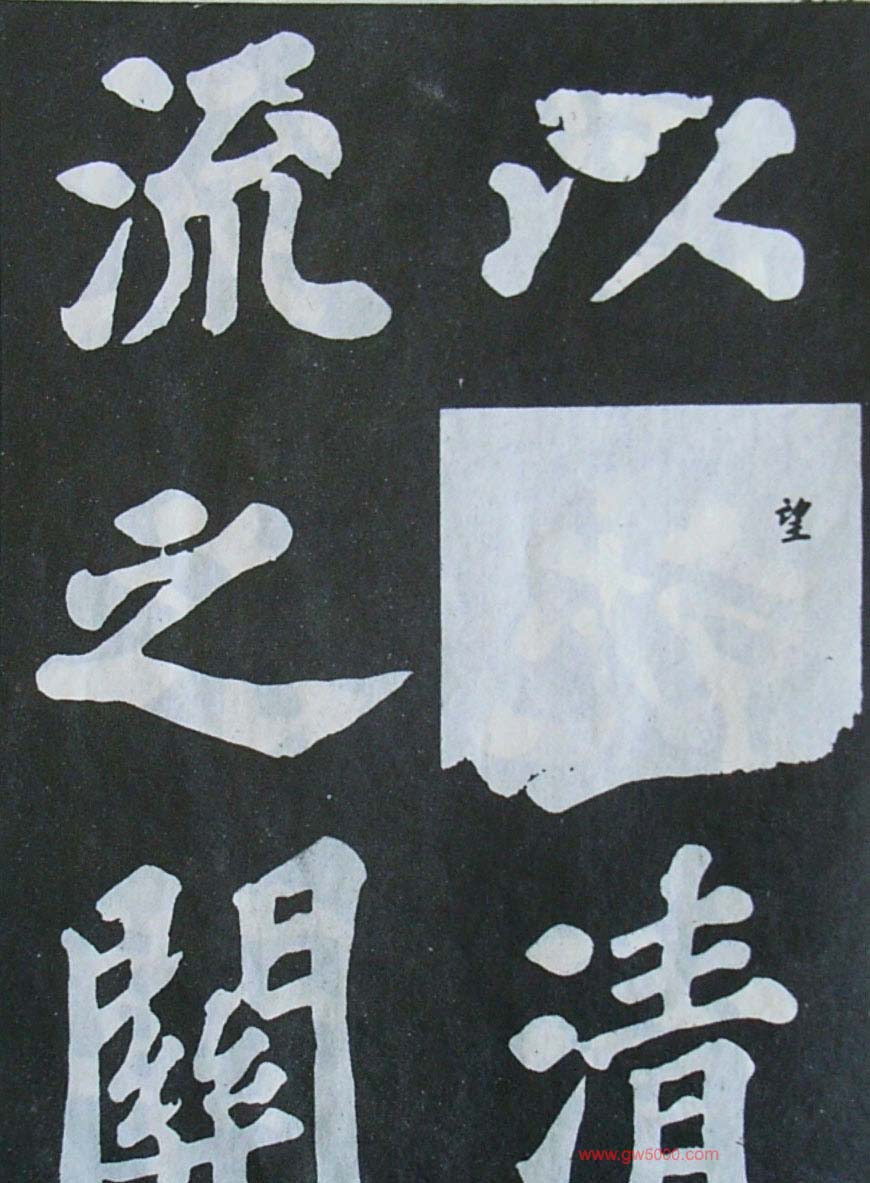 以望清
流之關
www.gw5000.com